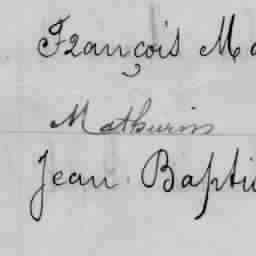 François Ma
Mathurin
Jean Baptis